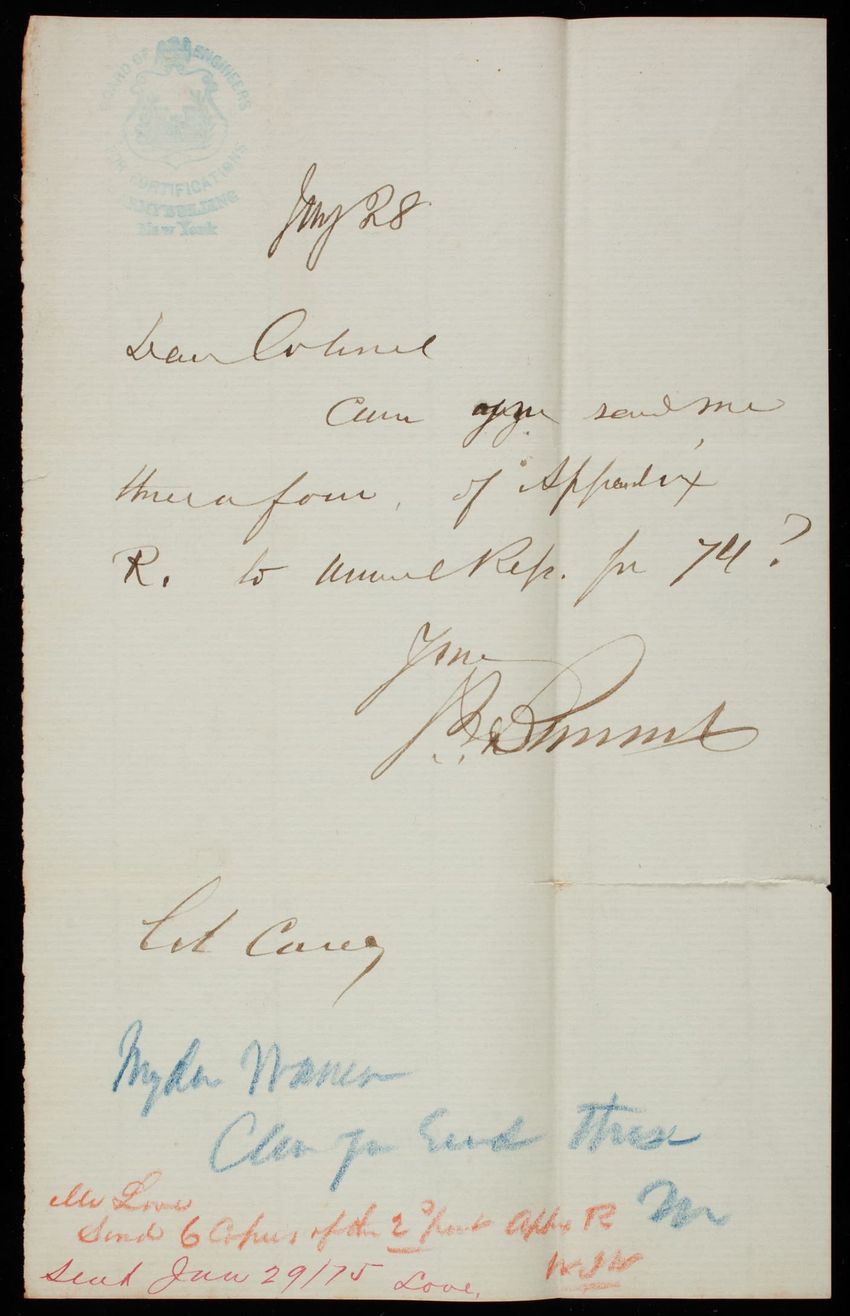 BOARD OF ENGINEERS
FOR FORTIFICATIONS
ARMY BUILDING
New York
Jany 28
Dear Colonel
Can you send me
three or four, of Appendix
R. to Annual Rep. for 74?
Yours
Col Casey
My dear Warren
Can you Send these
Mr Love
Send 6 Copies of the 2 Appx R
Sent Jan 29/75 Love.